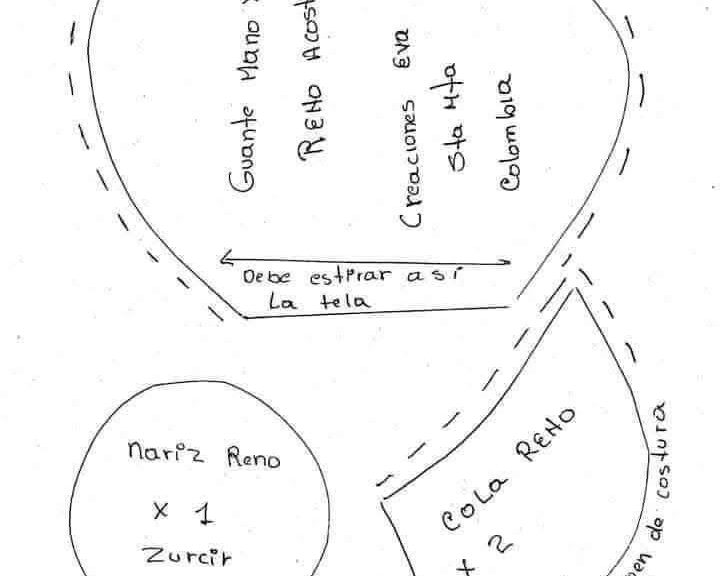 Guante Mano
RENO
Creaciones Eva
Sta Mta
Colombia
Debe estirar así
La tela
Nariz Reno
x 1
Zurcir
COLA RENO
x 2
de costura